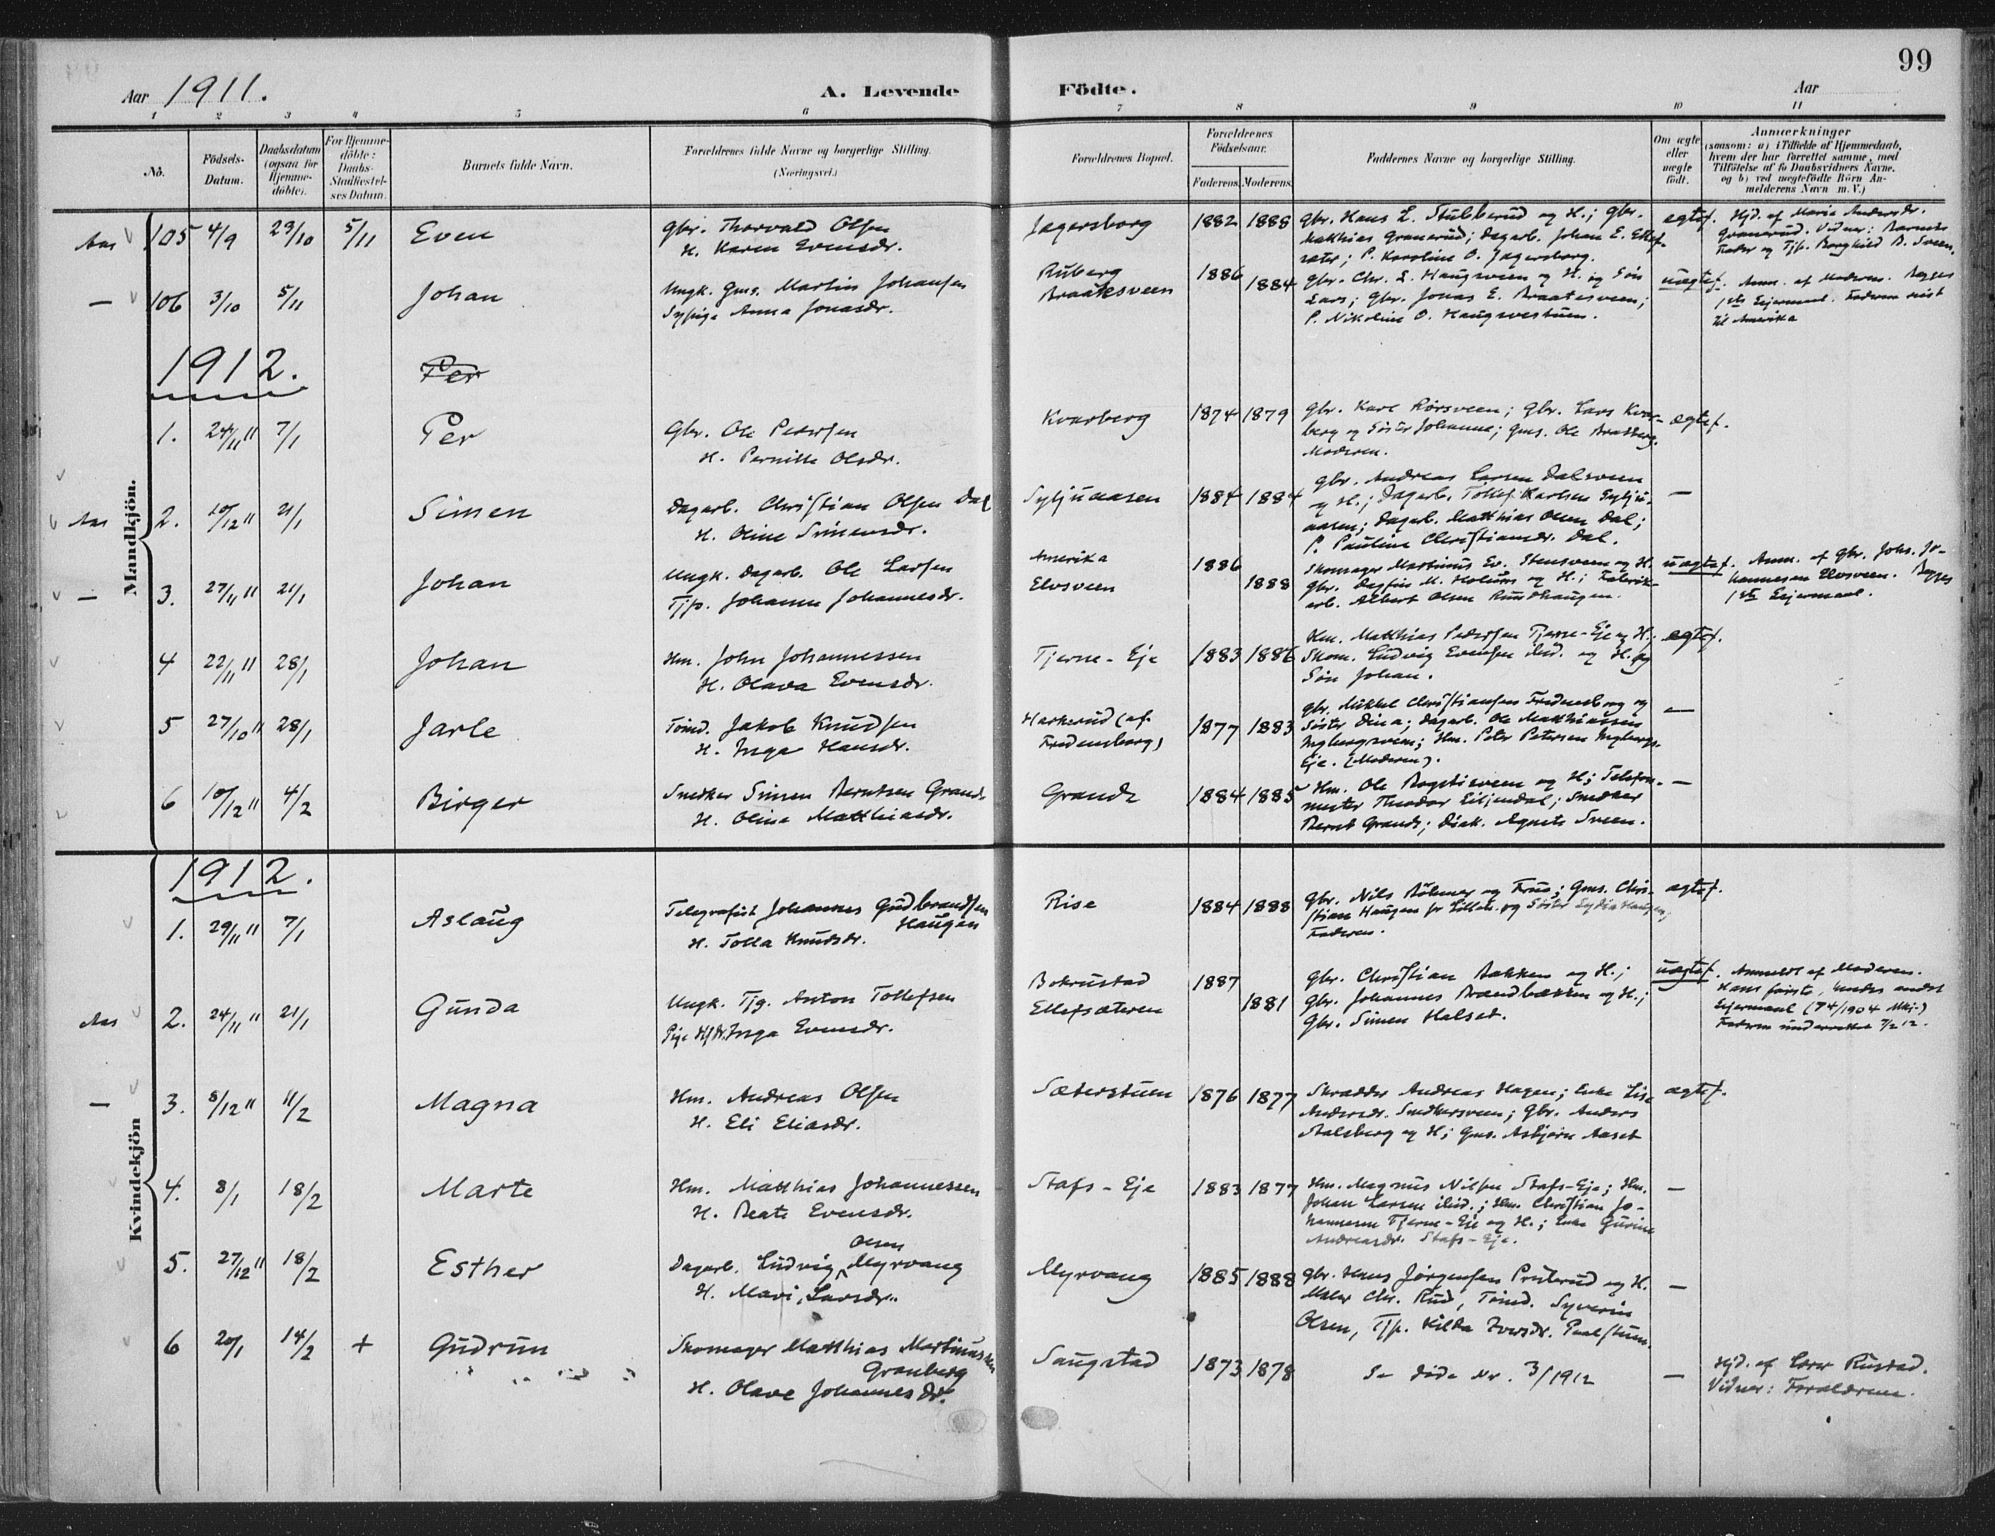 99
Aar 1911. A. Levende Födte. Aar
1 2 3 4 5 6 7 8 9 10 11
No. Födsels-Datum. Daabsdatum (ogsaa for Hjemme-döbte). For Hjemme-döbte: Daabs-Stadfæstel-ses Datum. Barnets fulde Navn. Forældrenes fulde Navne og borgerlige Stilling. (Næringsvei.) Forældrenes Bopæl. Forældrenes Födselsaar. Faderens. Moderens. Faddernes Navne og borgerlige Stilling. Om ægte eller uægte födt. Anmærkninger (saasom: a) i Tilfælde af Hjemmedaab, hvem der har forrettet samme, med Tilföielse af to Daabsvidners Navne, og b) ved uægtefödte Börn An-melderens Navn m. V.)
Mandkjön.
Aas 105 4/9 29/10 5/11 Even Gbr. Thorvald Olsen Jagersborg 1882 1888 Gbr. Hans L. Stubberud og H.; Gbr. ægtef. Hjd. af Maria Andersdr.
H. Karen Evensdr. Matthias Granerud; Dagarb. Johan E. Granerud. Vidner: Barnets
P. Karoline O. Jagersborg. Fader og Tjp. Borghild B. Sveen.
— 106 3/10 5/11 Johan Ungk. Gms. Martin Johansen Ruberg 1886 Gbr. Chr. L. Haugsveen og H. og Sön uægtef. Anm. af Moderen. Begges
Sypige Anna Jonasdr. Braatesveen 1884 Lars; Gbr. Jonas E. Braatesveen; 1ste Leiermaal. Faderen reist
P. Nikoline O. Haugsvestuen. til Amerika
1912. Per
1. 24/11 11 7/1 Per Gbr. Ole Pedersen Kvarberg 1874 1879 Gbr. Karl Rörsveen; Gbr. Lars Kvar- ægtef.
H. Pernille Olsdr. berg og Söster Johanne; Gms. Ole Bratberg.
Moderen.
Aas 2. 10/12 11 21/1 Simen Dagarb. Christian Olsen Dal Syljuaasen 1884 1884 Gbr. Andreas Larsen Dalsveen —
H. Oline Simensdr. og H.; Dagarb. Tollef Karlsen Sylju-
aasen; Dagarb. Matthias Olsen Dal;
P. Pauline Christiansdr. Dal.
— 3. 27/11 11 21/1 Johan Ungk. Dagarb. Ole Larsen Amerika 1886 Skomager Martinus Ev. Stensveen og H. uægtef. Anm. af Gbr. Johs. Jo-
Tjp. Johanne Johannesdr. Elvsveen 1888 Gbr. Dagfin M. Holum og H.; Fabrik- hannesen Elvsveen. Begges
arb. Albert Olsen Rundhaugen. 1ste Leiermaal.
4 22/11 11 28/1 Johan Hm. John Johannessen Tjerne-Eje 1883 1886 Hm. Matthias Pedersen Tjerne-Eje og H.; ægtef.
H. Olava Evensdr. Skom. Ludvig Evensen ibid. og H. og
Sön Johan.
5 27/10 11 28/1 Jarle Tömd. Jakob Knudsen Harkerud (af 1877 1883 Gbr. Mikkel Christiansen Fredensborg og —
H. Inga Hansdr. Fredensborg) Söster Dina; Dagarb. Ole Matthiassen
Ingbergsveen; Hm. Peter Petersen Ingbergs-
Eje. (Moderen).
6 10/12 11 4/2 Birger Snedker Simen Berntsen Grande Grande 1884 1885 Hm. Ole Bagstisveen og H; Telefon- —
H. Olina Matthiasdr. mester Theodor Liljendal; Snedker
Bernt Grande; Diak. Agnete Sveen.
Kvindekjön
1912.
1. 29/11 11 7/1 Aslaug Telegrafist Johannes Gudbrandsen Haugen Rise 1884 1888 Gbr. Nils Böhmer og Frue; Gms. Chris- ægtef.
H. Tolla Knudsdr. stian Haugen fr Lilleh. og Söster Lydia Haugen;
Faderen.
Aas 2. 24/11 11 21/1 Gunda Ungk. Tjg. Anton Tollefsen Bokrustad 1887 Gbr. Christian Bakken og H.; uægtef. Anmeldt af Moderen.
Pige Inga Evensdr. Ellefsæteren 1881 Gbr. Johannes Brændbakken og H.; Hans förste, hendes andet
Gbr. Simen Halset. Leiermaal (74/1904 Mkj.)
Faderen underrettet 7/2 12.
— 3. 8/12 11 11/2 Magna Hm. Andreas Olsen Sæterstuen 1876 1877 Skrædder Andreas Hagen; Enke Lise ægtef.
H. Eli Eliasdr. Andersdr. Snedkersveen; Gbr. Anders
Aalsberg og H; Gms. Asbjörn Aaset
4. 8/1 18/2 Marte Hm. Matthias Johannessen Stafs-Eje 1883 1877 Hm. Magnus Nilsen Stafs-Eje; Hm. —
H. Beate Evensdr. Johan Larsen ibid.; Hm. Christian Jo-
hannesen Tjerne-Eje og H.; Enke Gurine
Andreasdr. Stafs-Eje.
5. 27/12 11 18/2 Esther Dagarb. Ludvig Olsen Myrvang Myrvang 1885 1888 Gbr. Hans Jörgensen Prüterud og H. —
H. Mari Larsdr. Maler Chr. Rud, Tömd. Syverin
Olsen, Tjp. Hilda Iversdr. Paalstuen.
6 20/1 14/2 + Gudrun Skomager Matthias Martinussen Granberg Saugstad 1873 1878 Se döde Nr. 3/1912 — Hjd. af Lærer Rustad.
H. Olave Johannesdr. Vidner: Forældrene.